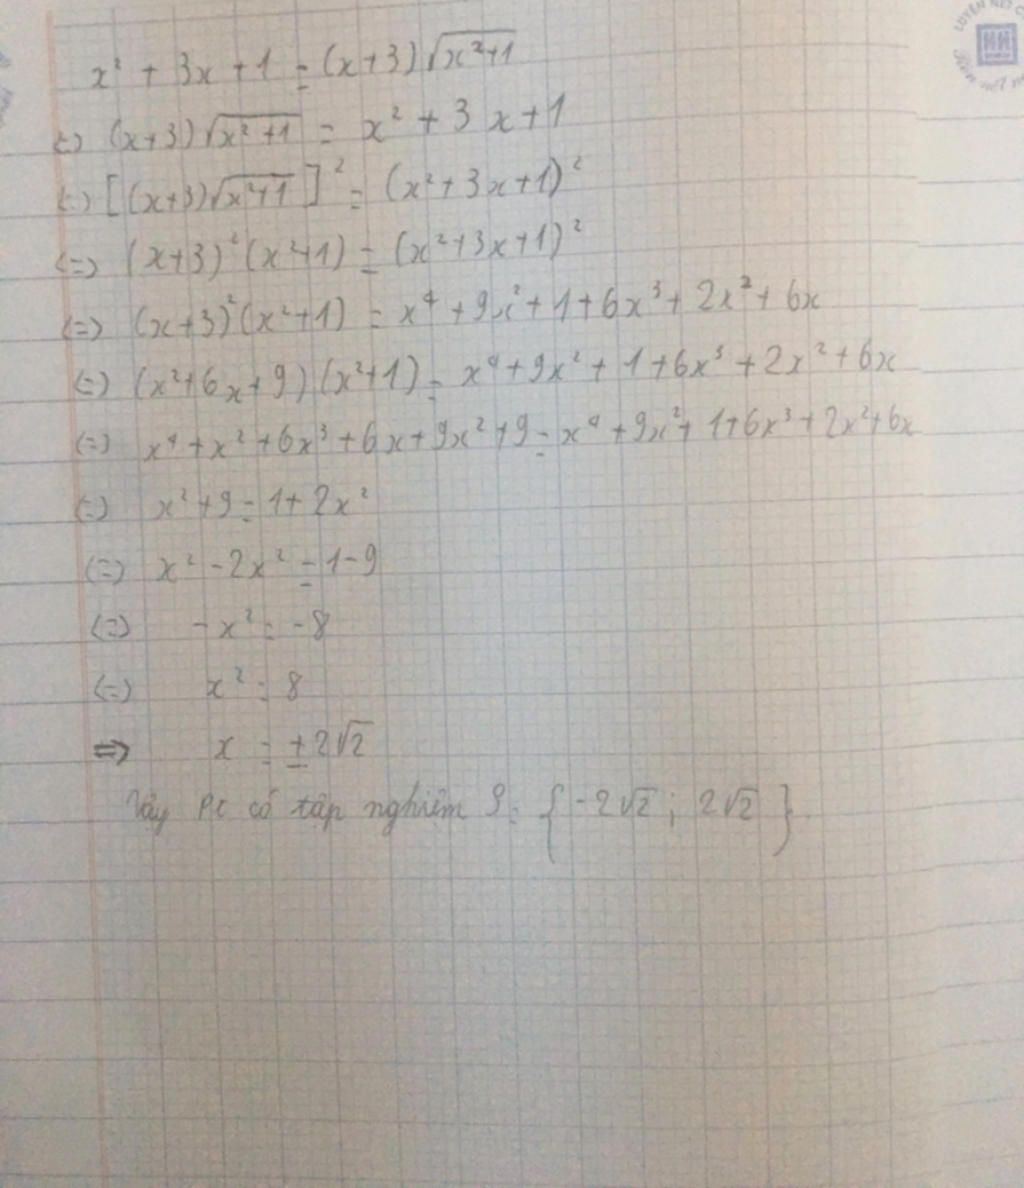 x² + 3x + 1 = (x+3)√(x²+1)
(=) (x+3)√(x²+1) = x² + 3x + 1
(=) [(x+3)√(x²+1)]² = (x²+3x+1)²
(=) (x+3)²(x²+1) = (x²+3x+1)²
(=) (x+3)²(x²+1) = x⁴ + 9x² + 1 + 6x³ + 2x² + 6x
(=) (x²+6x+9)(x²+1) = x⁴ + 9x² + 1 + 6x³ + 2x² + 6x
(=) x⁴ + x² + 6x³ + 6x + 9x² + 9 = x⁴ + 9x² + 1 + 6x³ + 2x² + 6x
(=) x² + 9 = 1 + 2x²
(=) x² - 2x² = 1 - 9
(=) -x² = -8
(=) x² = 8
=> x = ±2√2
Vậy Pt có tập nghiệm S = {-2√2; 2√2}.